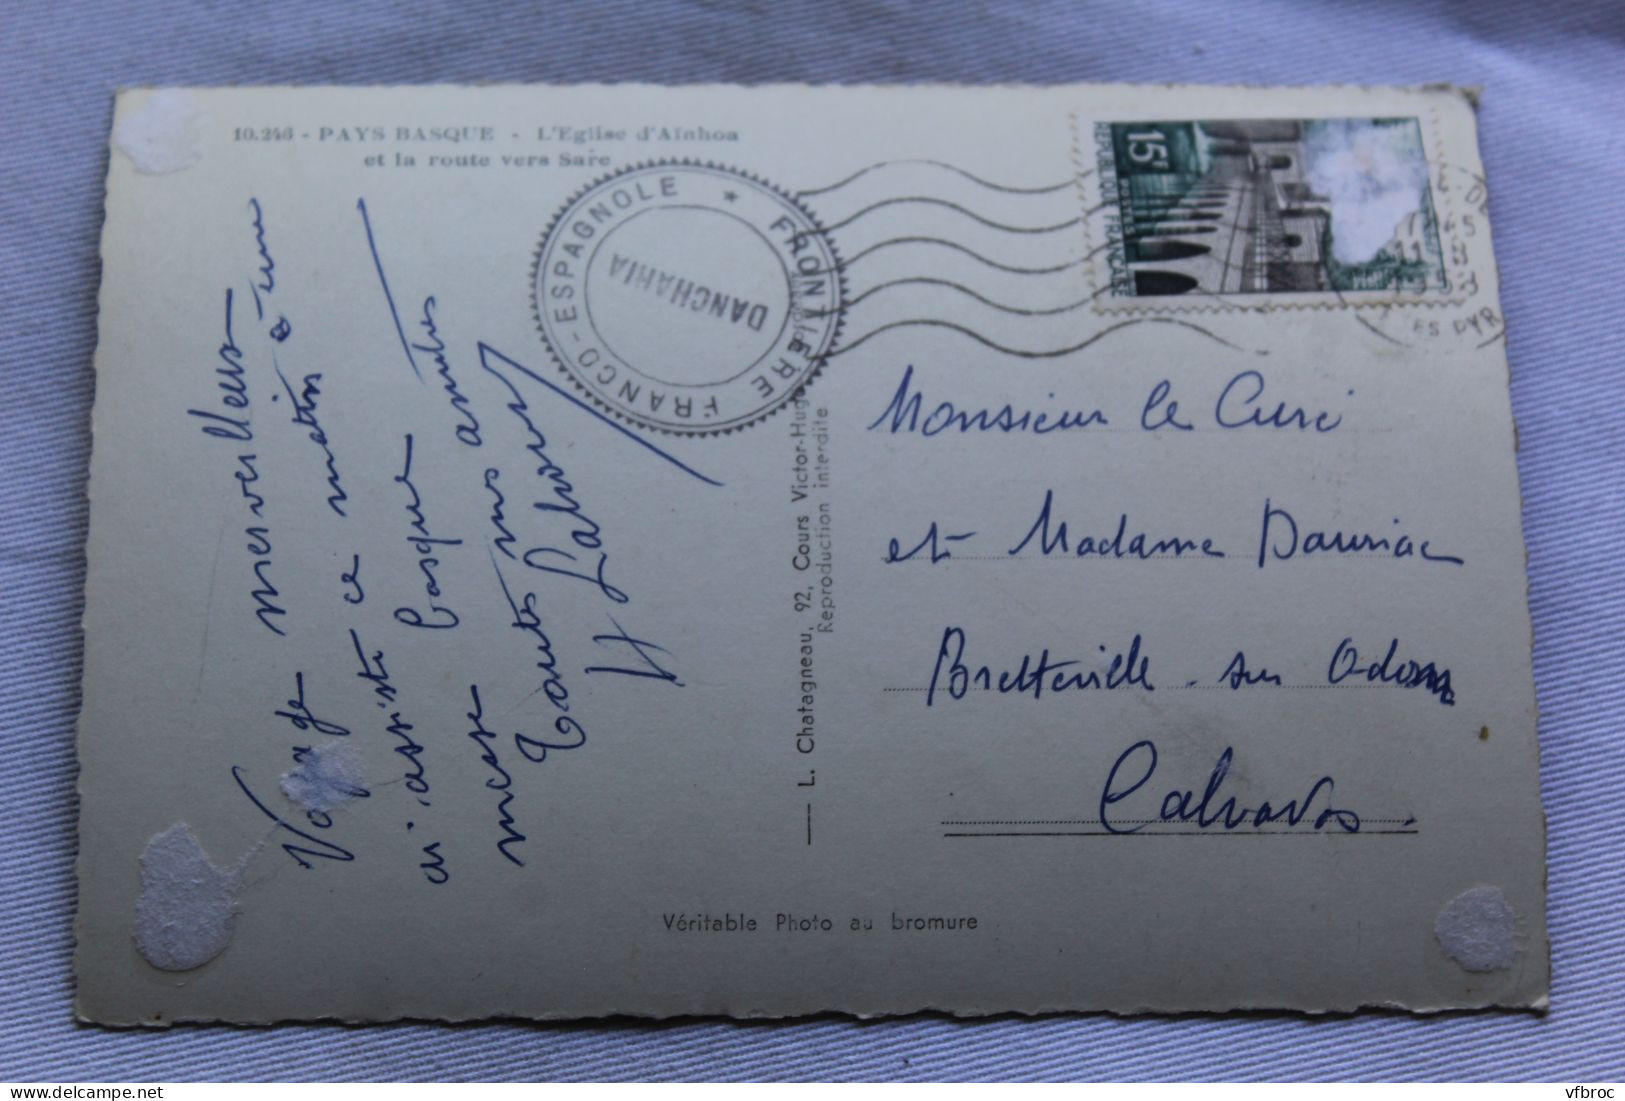 10.246 - PAYS BASQUE - L'Eglise d'Aïnhoa
et la route vers Sare
FRONTIÈRE FRANCO-ESPAGNOLE
DANCHAHIA
15F
RÉPUBLIQUE FRANÇAISE
POSTES
Voyage merveilleux
ai assisté ce matin à une
messe basque
Toutes nos amitiés
H
Monsieur le Curé
et Madame Dauriac
Bretteville - sur Odon
Calvados.
L. Chatagneau, 92, Cours Victor-Hugo
Reproduction interdite
Véritable Photo au bromure
vfbroc